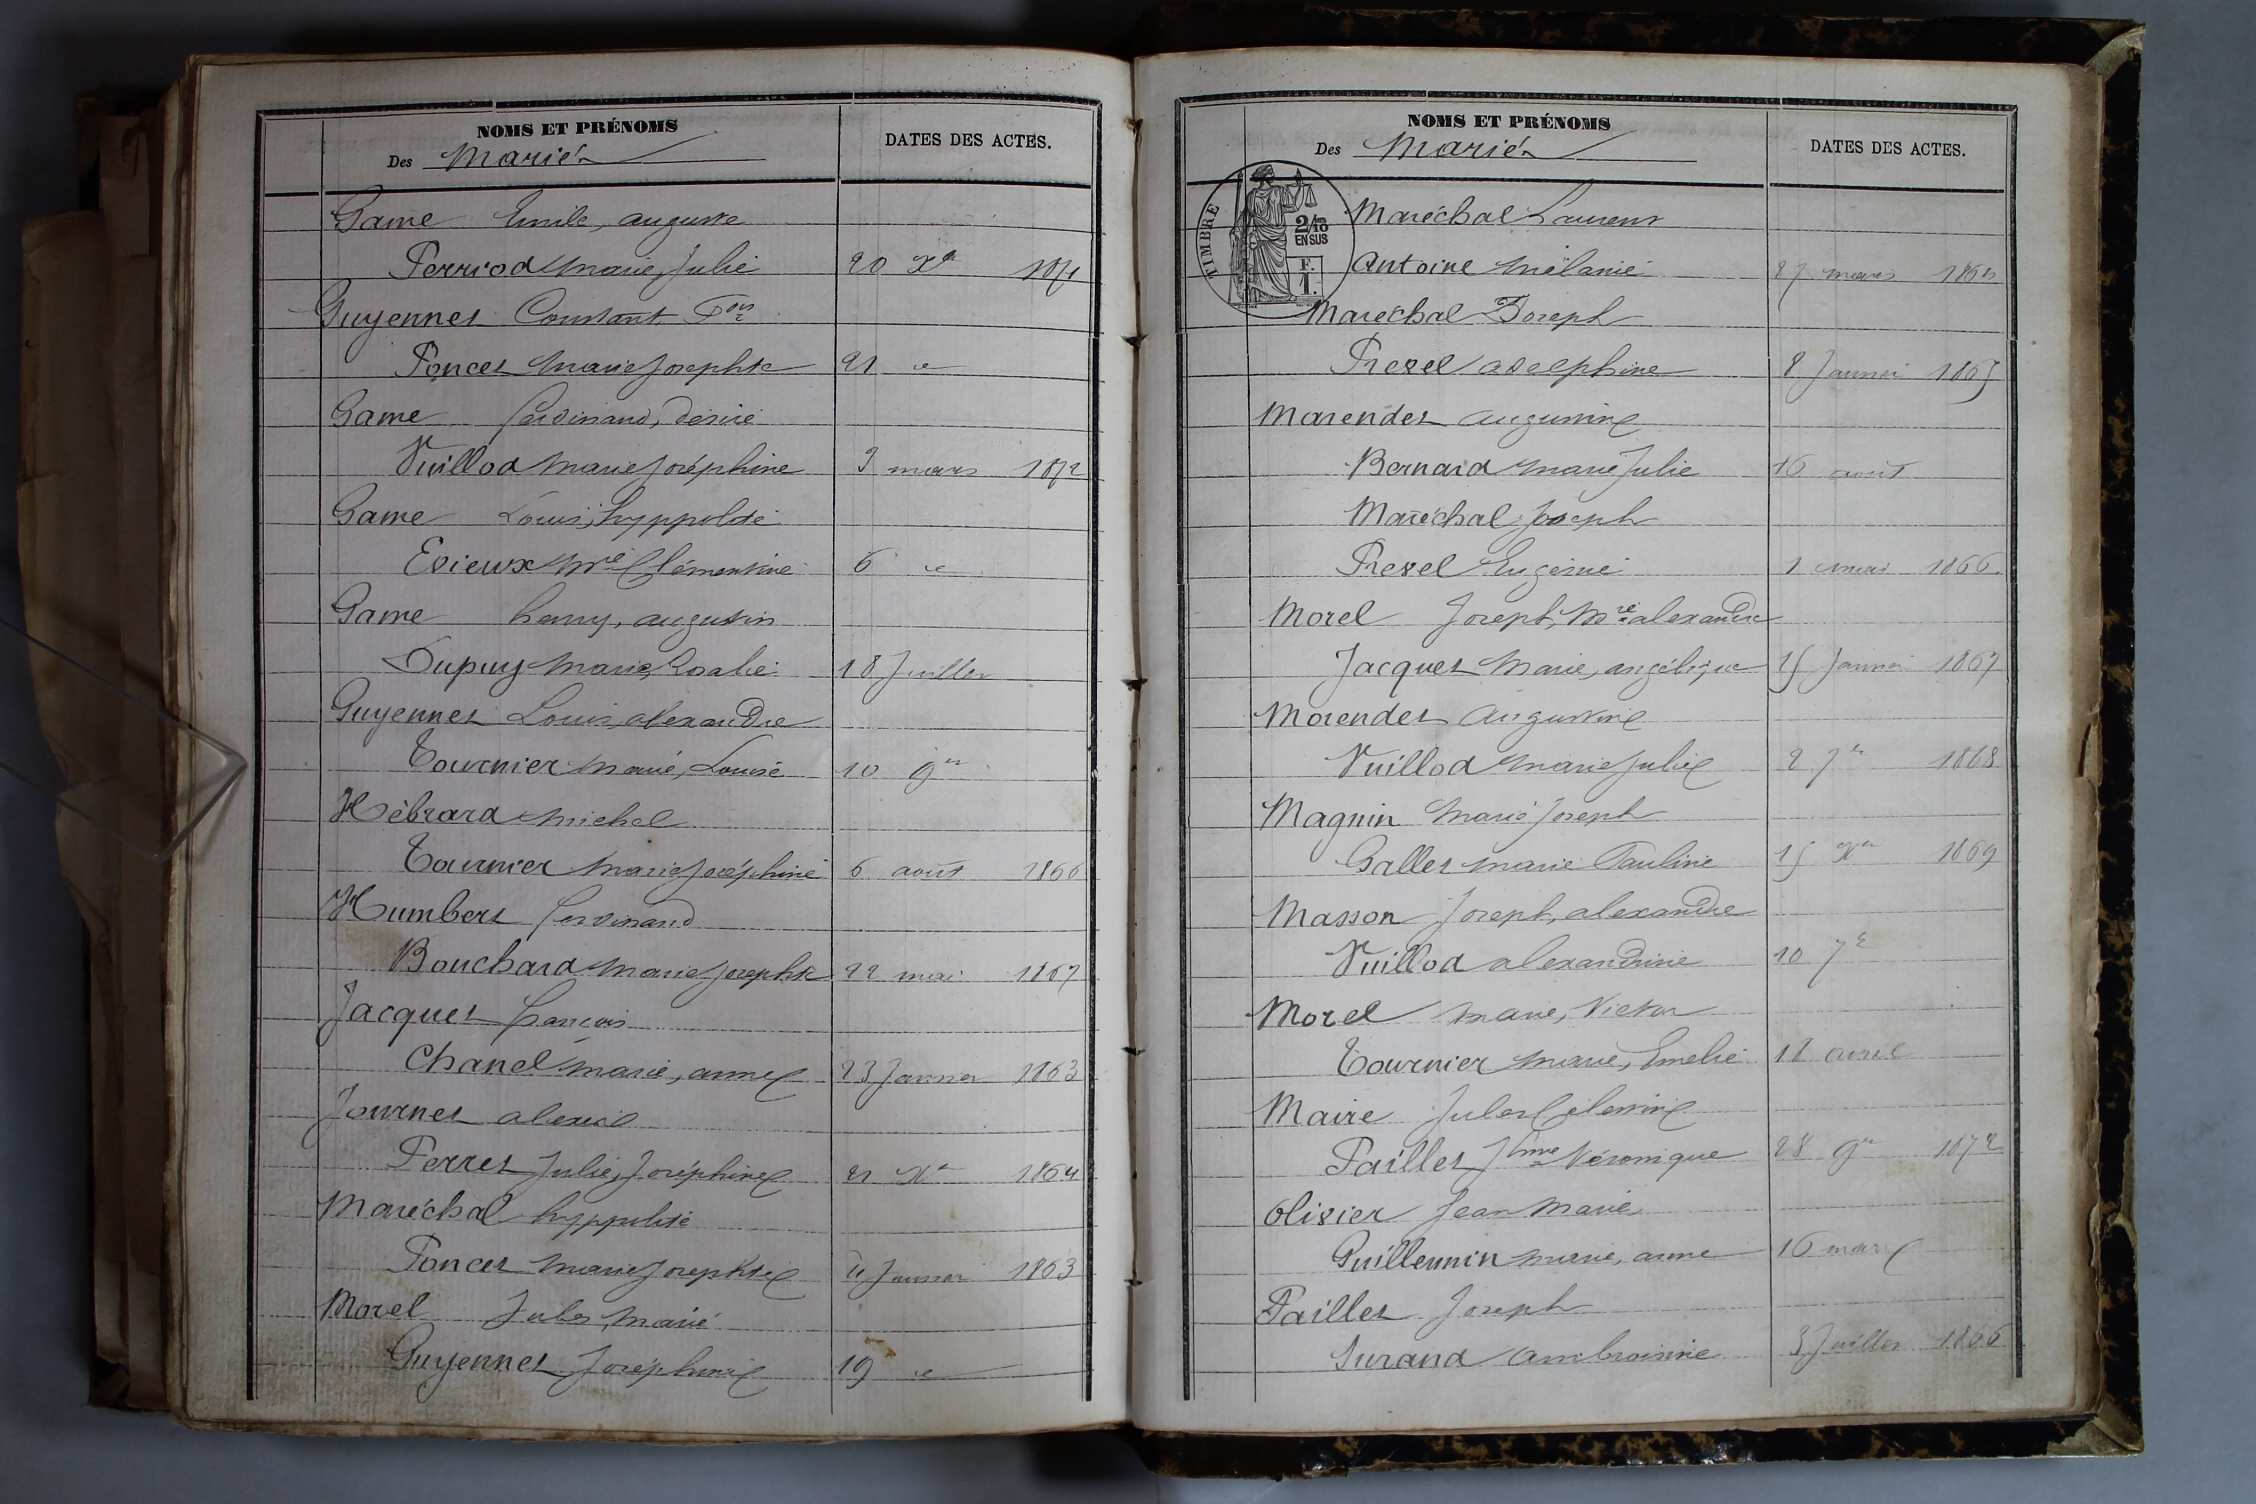 NOMS ET PRÉNOMS
Des Mariés
DATES DES ACTES.
Game Emile, auguste
Perriod Marie, Julie 20 Xbre 1871
Guyennet Constant, Fois
Poncet Marie Josephte 21 "
Game ferdinand, désiré
Vuillod Marie Joséphine 3 mars 1872
Game Louis, hyppolite
Evieux Mie Clémentine 6 "
Game henry, augustin
Dupuy Marie, Rosalie 18 Juillet
Guyennet Louis, alexandre
Tournier Marie, Louise 10 9bre
Hébrard Michel
Tournier Marie Joséphine 6 août 1866
Humbert ferdinand
Bouchard Marie Josephte 22 mai 1867
Jacquet françois
Chanel marie, anne 23 Janvier 1863
Journet alexis
Perret Julie, Joséphine 21 Xbre 1864
Maréchal hyppolite
Poncet Marie Josephte Janvier 1863
Morel Jules, Marie
Guyennet Joséphine 19 "
NOMS ET PRÉNOMS
Des Mariés
DATES DES ACTES.
TIMBRE
2/10
EN SUS
F.
1.
Maréchal Laurent
Antoine Mélanie 27 mars 1864
Maréchal Joseph
Prevel adelphine 8 Janvier 1865
Marendet augustin
Bernard Marie Julie 16 août
Maréchal Joseph
Prevel Eugénie 1 mars 1866
Morel Joseph, Mie alexandre
Jacquet Marie, angélique 15 Janvier 1867
Morendet Augustin
Vuillod Marie Julie 2 7bre 1868
Magnin Marie Joseph
Gallet marie Pauline 15 Xbre 1869
Masson Joseph, alexandre
Vuillod alexandrine 10 7bre
Morel Marie, Victor
Tournier Marie, Emelie 18 avril
Maire Jules Célestin
Paillet Jphine Véronique 28 9bre 1872
Olivier Jean Marie
Guillermin Marie, anne 16 mars
Paillet Joseph
Surand Ambroisine 3 Juillet 1866